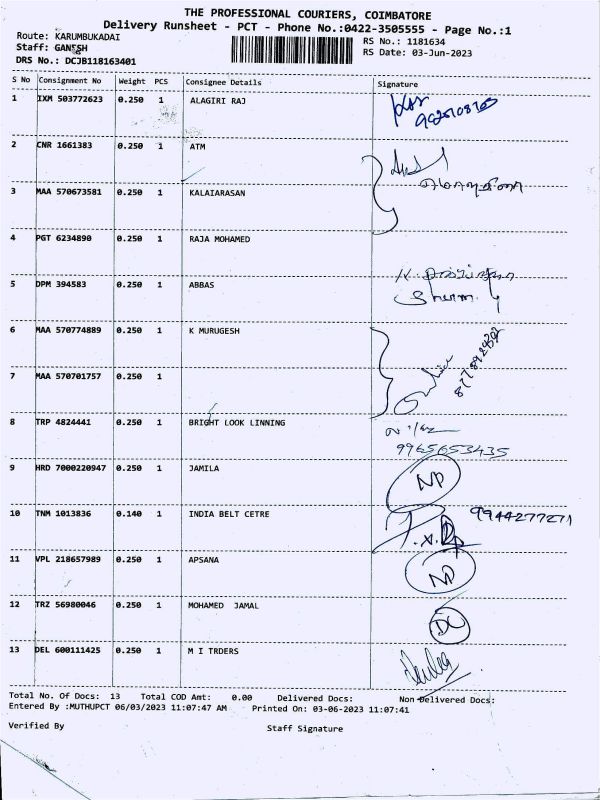 THE PROFESSIONAL COURIERS, COIMBATORE
Delivery Runsheet - PCT - Phone No.:0422-3505555 - Page No.:1
Route: KARUMBUKADAI
RS No.: 1181634
Staff: GANESH
RS Date: 03-Jun-2023
DRS No.: DCJB118163401
S No Consignment No Weight PCS Consignee Details Signature
1 IXM 503772623 0.250 1 ALAGIRI RAJ
2 CNR 1661383 0.250 1 ATM
3 MAA 570673581 0.250 1 KALAIARASAN
4 PGT 6234890 0.250 1 RAJA MOHAMED
5 DPM 394583 0.250 1 ABBAS
6 MAA 570774889 0.250 1 K MURUGESH
7 MAA 570701757 0.250 1
8 TRP 4824441 0.250 1 BRIGHT LOOK LINNING
9965653435
9 HRD 7000220947 0.250 1 JAMILA ND
10 TNM 1013836 0.140 1 INDIA BELT CETRE 9944277271
11 VPL 218657989 0.250 1 APSANA ND
12 TRZ 56980046 0.250 1 MOHAMED JAMAL DC
13 DEL 600111425 0.250 1 M I TRDERS
Total No. Of Docs: 13 Total COD Amt: 0.00 Delivered Docs: Non Delivered Docs:
Entered By :MUTHUPCT 06/03/2023 11:07:47 AM Printed On: 03-06-2023 11:07:41
Verified By Staff Signature